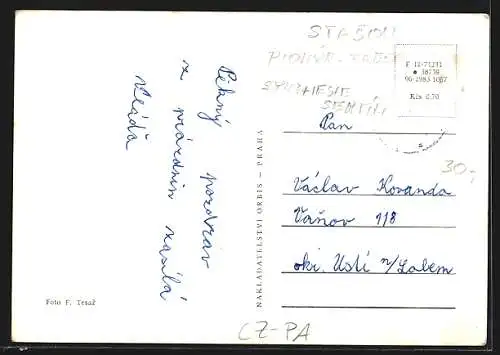 Pěkný pozdrav
z prázdnin zasílá
Vláďa
Foto F. Tesař
NAKLADATELSTVÍ ORBIS — PRAHA
STAŠOV
F 12-71211
38739
06-2983 1067
Kčs 0.70
Pan
Václav Kovanda
Vaňov 118
okr. Ústí n/Labem
30,-
CZ-PA